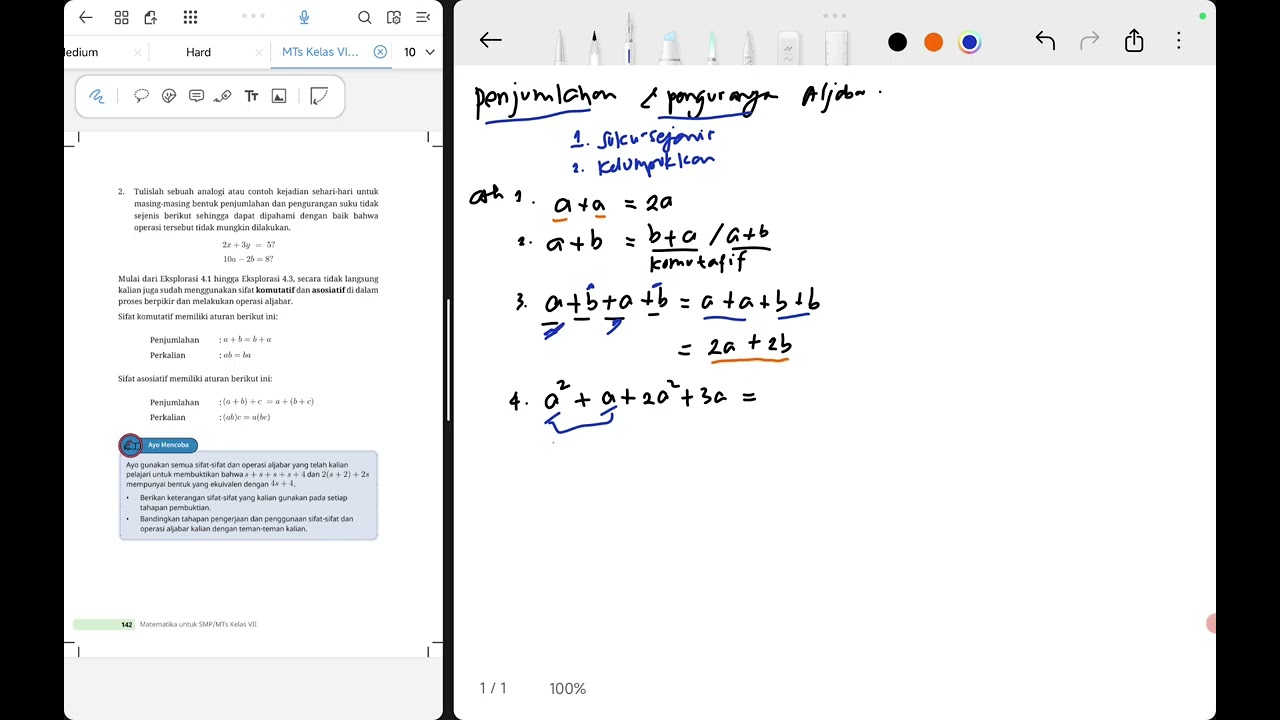 edium
Hard
MTs Kelas VI...
10
2. Tulislah sebuah analogi atau contoh kejadian sehari-hari untuk
masing-masing bentuk penjumlahan dan pengurangan suku tidak
sejenis berikut sehingga dapat dipahami dengan baik bahwa
operasi tersebut tidak mungkin dilakukan.
2x + 3y = 5?
10a − 2b = 8?
Mulai dari Eksplorasi 4.1 hingga Eksplorasi 4.3, secara tidak langsung
kalian juga sudah menggunakan sifat komutatif dan asosiatif di dalam
proses berpikir dan melakukan operasi aljabar.
Sifat komutatif memiliki aturan berikut ini:
Penjumlahan : a + b = b + a
Perkalian : ab = ba
Sifat asosiatif memiliki aturan berikut ini:
Penjumlahan : (a + b) + c = a + (b + c)
Perkalian : (ab)c = a(bc)
Ayo Mencoba
Ayo gunakan semua sifat-sifat dan operasi aljabar yang telah kalian
pelajari untuk membuktikan bahwa s + s + s + s + 4 dan 2(s + 2) + 2s
mempunyai bentuk yang ekuivalen dengan 4s + 4.
• Berikan keterangan sifat-sifat yang kalian gunakan pada setiap
tahapan pembuktian.
• Bandingkan tahapan pengerjaan dan penggunaan sifat-sifat dan
operasi aljabar kalian dengan teman-teman kalian.
142 Matematika untuk SMP/MTs Kelas VII
Penjumlahan & pengurangan Aljabar.
1. Suku-sejenis
2. Kelompokkan
1. a + a = 2a
2. a + b = b + a / a + b
komutatif
3. a + b + a + b = a + a + b + b
= 2a + 2b
4. a² + a + 2a² + 3a =
1 / 1
100%